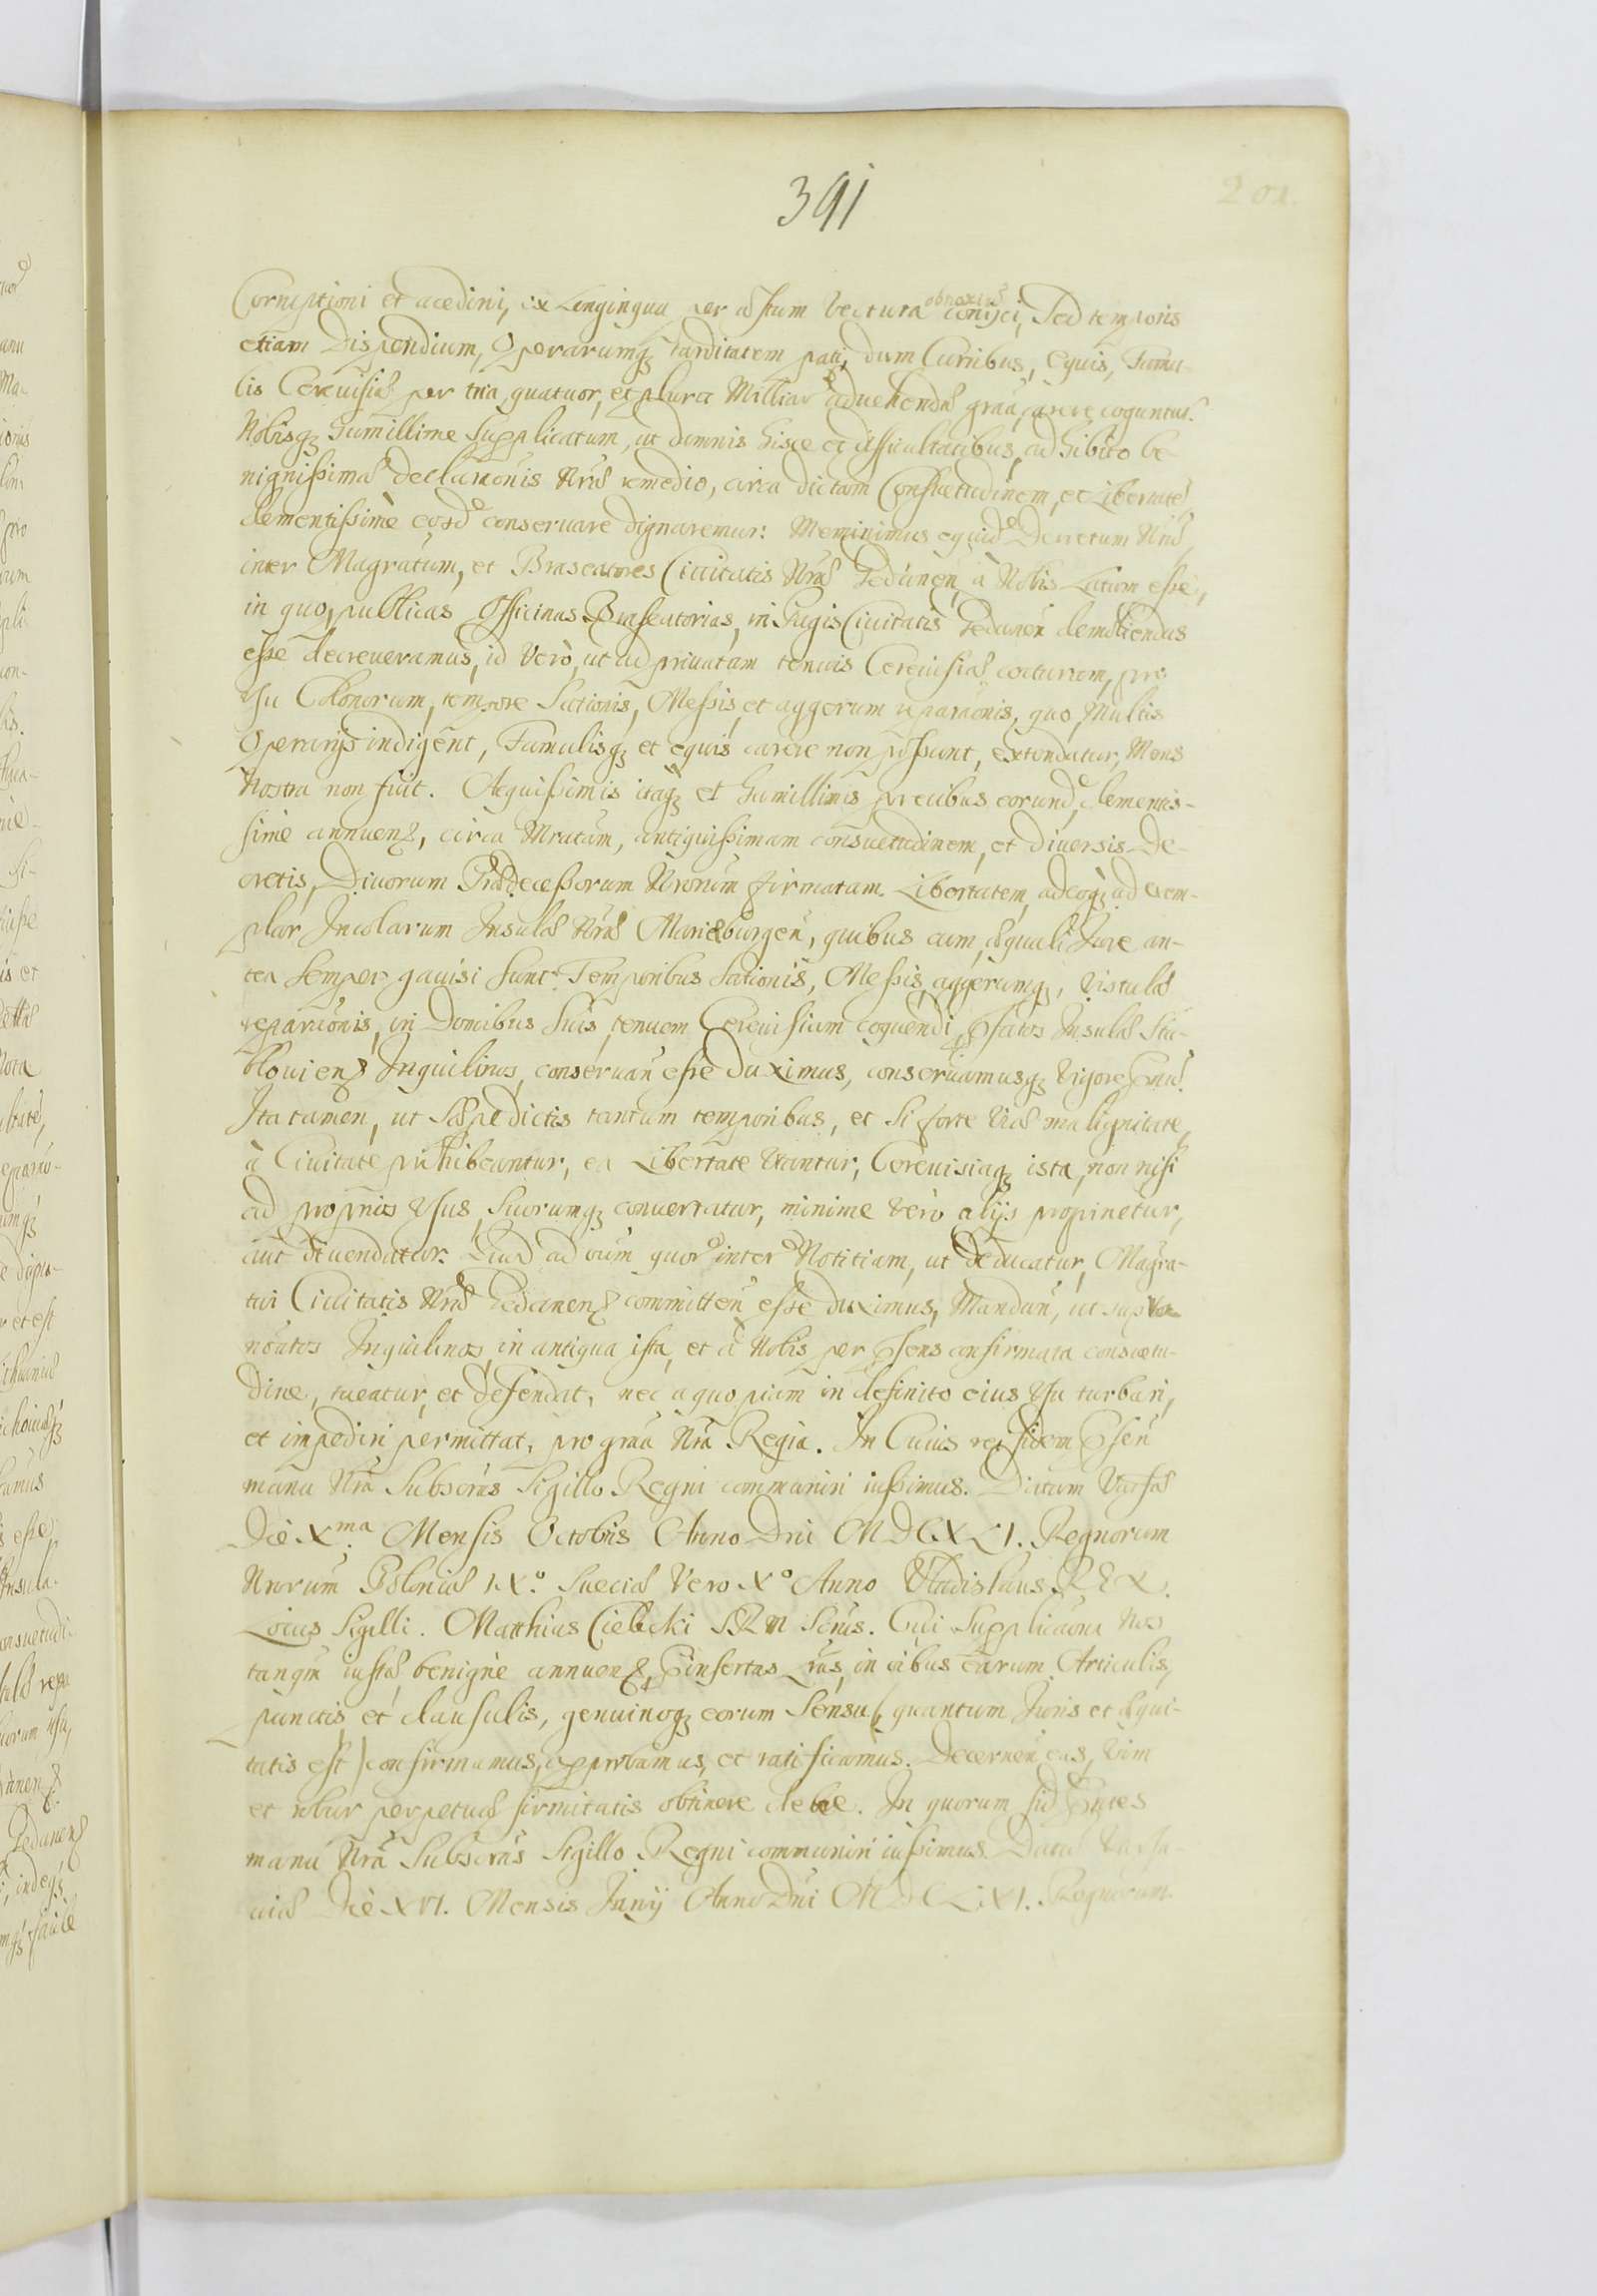 391
201.
Corruptioni et acedini, ex Longinqua per æstum Vectura obnoxiæ conijci, Sed temporis
etiam Dispendium, Operarumq3 tarditatem pati, dum Curribus, Equis, Famu-
lis Cerevisiæ per tria, quatuor, et plura Milliar advehendæ grãa, carere coguntur.
Nobisq3 humillime Supplicatum, ut damnis hisce et difficultatibus, adhibito be-
nignissimæ declarãonis Nræ remedio, circa dictam Consuetudinem, et Libertatẽ
clementissimè eosd conservare dignaremur: Meminimus equid Decretum Nrũ
inter Magratum, et Braxeatores Civitatis Nræ Gedanen, à Nobis Latum esse,
in quo, publicas Officinas Braseatorias, in Pagis Civitatis Gedanen demoliendas
esse decreveramus, id Verò, ut ad privatam tenuis Cerevisiæ cocturam, pro
Usu Colonorum, tempore Sationis, Messis, et aggerum reparãonis, quo, Multis
Operarijs indigent, Famulisq3 et equis carere non possunt, extendatur, Mens
Nostra non fuit. Aequissimis itaq3 et humillimis precibus eorund, clementis-
sime annuen, circa Mratam, antiquissimam consuetudinem, et diversis De-
cretis, Divorum Prædecessorum Nrorum firmatam Libertatem, adeoq3 ad exem-
plar Incolarum Insulæ Nræ Marieburgen, quibus cum, æquali Jure an-
tea semper gavisi sunt Temporibus Sationis, Messis, aggerumq3, Vistulæ
reparãonis, in Domibus Suis, tenuem Cerevisiam coquendi, Pfatos Insulæ Stu-
bloviens Inquilinos, conservan esse duximus, conservamusq3 Vigore Pntiũ.
Ita tamen, ut Sæpe dictis tantum temporibus, et Si forte Viæ malignitate,
à Civitate prohibeantur, ea Libertate Utantur, Cerevisiaq3 ista, non nisi
ad proprios Usus, Suorumq3 convertatur, minime verò alijs propinetur,
aut divendatur. Quod ad oium quor inter Notitiam, ut deducatur, Magra-
tui Civitatis Nræ Gedanens committen esse duximus, Mandan, ut supra
noatos Inquilinos, in antiqua ista, et à Nobis per Psens confirmata consuetu-
dine, tueatur, et defendat, nec a quo piam in definito eius Usu turbari,
et impediri permittat, pro grãa Nrã Regia. In Cuius rei fidem Psen
manu Nrã Subscras Sigillo Regni communiri iussimus. Datum Varsæ
Die Xma Mensis Octobris Anno Dni MDCXLI. Regnorum
Nrorum Poloniæ IXo Sueciæ Vero Xo Anno Vladislaus REX.
Locus Sigilli. Matthias Cielecki SRM Scrius. Cui Supplicaoni Nos
tanqm iustæ, benigne annuen, Pinsertas Lras, in oibus earum Articulis,
punctis et clausulis, genuinoq3 eorum Sensu, quantum Juris et æqui-
tatis est) confirmamus, approbamus, et ratificamus. Decernen eas, Vim
et robur perpetuæ firmitatis obtinere debere. In quorum fid Pntes
manu Nrã Subscras Sigillo Regni communiri iussimus. Datũ Varsa-
viæ Die XVI. Mensis Junij Anno Dni MDCLXI. Regnorum